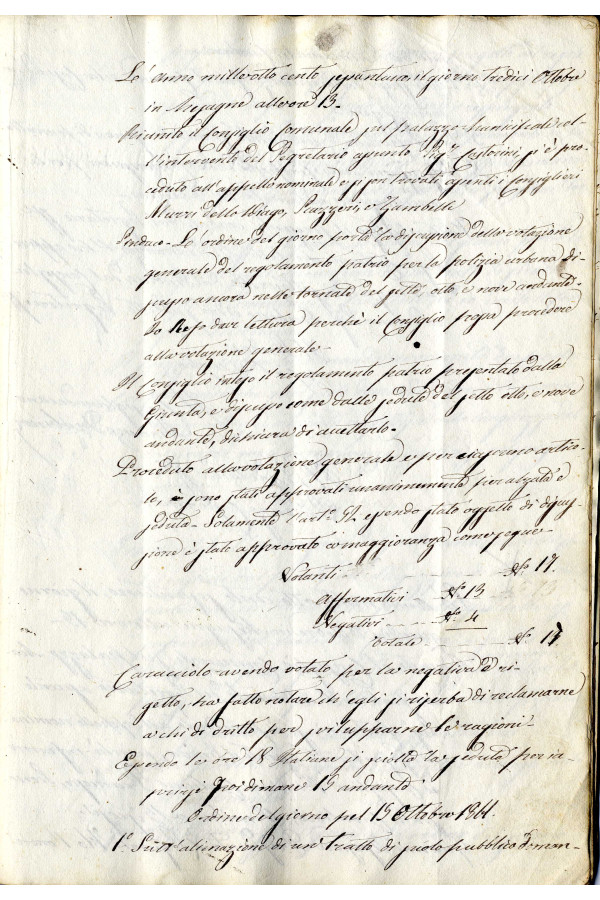 L'anno mille otto cento sessantuno, il giorno tredici Ottobre
in Mesagne alle ore 13.
Riunito il Consiglio Comunale sul palazzo Municipale col-
l'intervento del Segretario assunto Sigr Castorini, si è pro-
ceduto all'appello nominale e si son trovati assenti i Consiglieri
Muzzi dello Diago, Prazzoni, e Zambelli
Sindaco - L'ordine del giorno porta la discussione della votazione
generale del regolamento patrio per la polizia urbana di-
scusso ancora nelle tornate del sette, otto, e nove andante.
Io ne fo dar lettura perchè il Consiglio possa procedere
alla votazione generale.
Il Consiglio inteso il regolamento patrio presentato dalla
Giunta, e discusso come dalle sedute del sette otto, e nove
andante, dichiara di accettarlo.
Proceduto alla votazione generale e per ciascuno artico-
lo, sono stati approvati unanimemente per alzata e
seduta - Solamente l'arto 92 essendo stato oggetto di discus-
sione è stato approvato a maggioranza come segue
Votanti No 17
Affermativi No 13
Negativi No 4
Totale No 17
Caracciolo avendo votato per la negativa è ri-
getto, ha fatto notare ch'egli si riserba di reclamarne
a chi di dritto per svilupparne le ragioni.
Essendo le ore 18 Italiane si sciolta la seduta per ria-
prirsi Posdimane 15 andante
Ordine del giorno pel 15 Ottobre 1861.
1o Sull'alienazione di un tratto di suolo pubblico diman-